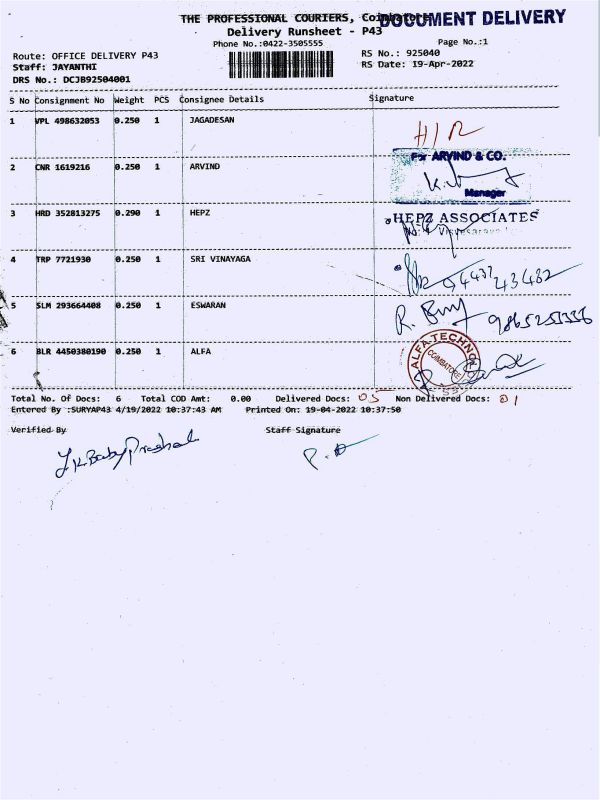 THE PROFESSIONAL COURIERS, Coimbatore
DOCUMENT DELIVERY
Delivery Runsheet - P43
Phone No.:0422-3505555
Page No.:1
Route: OFFICE DELIVERY P43
RS No.: 925040
Staff: JAYANTHI
RS Date: 19-Apr-2022
DRS No.: DCJB92504001
S No Consignment No Weight PCS Consignee Details Signature
1 VPL 498632053 0.250 1 JAGADESAN H/R
2 CNR 1619216 0.250 1 ARVIND
For ARVIND & CO.
Manager
3 HRD 352813275 0.290 1 HEPZ
HEPZ ASSOCIATES
4 TRP 7721930 0.250 1 SRI VINAYAGA
5 SLM 293664408 0.250 1 ESWARAN
6 BLR 4450380190 0.250 1 ALFA
ALFA TECHNO
COIMBATORE
Total No. Of Docs: 6 Total COD Amt: 0.00 Delivered Docs: 05 Non Delivered Docs: 01
Entered By :SURYAP43 4/19/2022 10:37:43 AM Printed On: 19-04-2022 10:37:50
Verified By Staff Signature